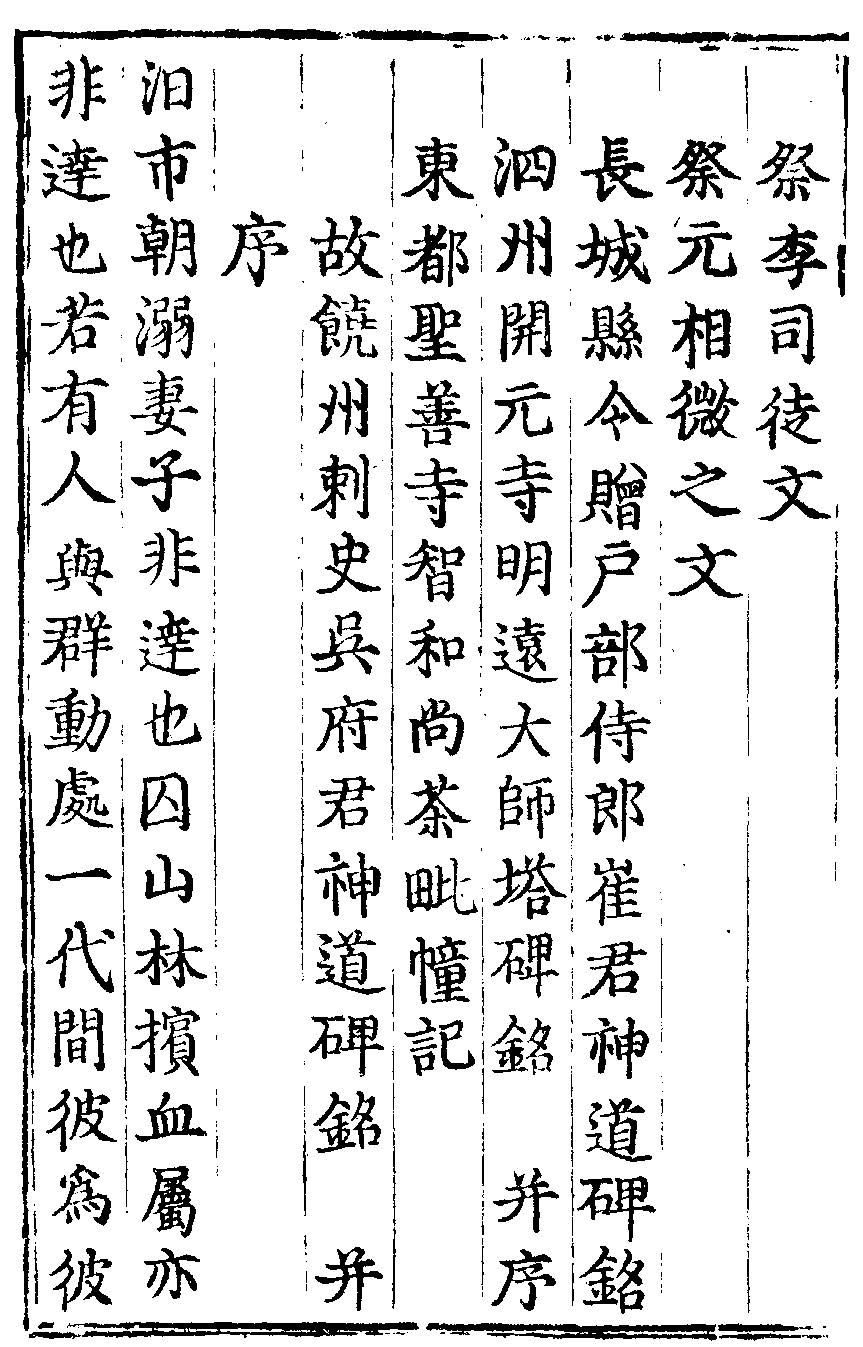 祭李司徒文
祭元相微之文
長城縣令贈戶部侍郎崔君神道碑銘
泗州開元寺明遠大師塔碑銘　并序
東都聖善寺智和尚荼毗幢記
故饒州刺史吳府君神道碑銘　并
序
汩市朝溺妻子非達也囚山林擯血屬亦
非達也若有人與群動處一代間彼爲彼